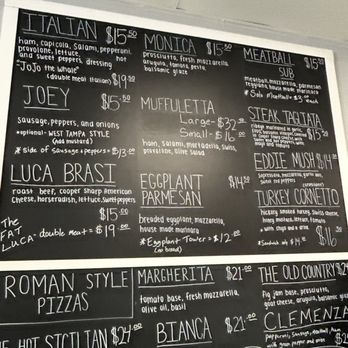 ITALIAN $15.50
ham, capicola, salami, pepperoni,
provolone, lettuce, hot
and sweet peppers, dressing
"JoJo the whale"
(double meat italian) $19.50
JOEY $15.50
sausage, peppers, and onions
*optional - WEST TAMPA STYLE
(add mustard)
* side of sausage & peppers - $13.00
LUCA BRASI
roast beef, cooper sharp American
cheese, horseradish, lettuce, sweet peppers
$15.00
The FAT LUCA - double meat = $19.00
MONICA $15.50
prosciutto, fresh mozzarella
arugula, tomato, pesto,
balsamic glaze
MUFFULETTA
Large - $32.00
Small - $16.00
ham, salami, mortadella, swiss,
provolone, olive salad
EGGPLANT PARMESAN $14.50
breaded eggplant, mozzarella,
house made marinara
*Eggplant Tower = $12.00
(no bread)
MEATBALL SUB $15
meatball, mozzarella, parmesan
reggiano, house made marinara
* Solo Meatball = $3 each
STEAK TAGLIATA $15
EDDIE MUSH $14
sopressata, mozzarella,
TURKEY CORNETTO
hickory smoked turkey, swiss cheese,
$16
ROMAN STYLE PIZZAS
HOT SICILIAN $27.00
MARGHERITA $21.00
tomato base, fresh mozzarella,
olive oil, basil
BIANCA $21
THE OLD COUNTRY $2
fig jam base, prosciutto,
goat cheese, arugula, balsamic
CLEMENZA
pepperoni, sausage, meatball,